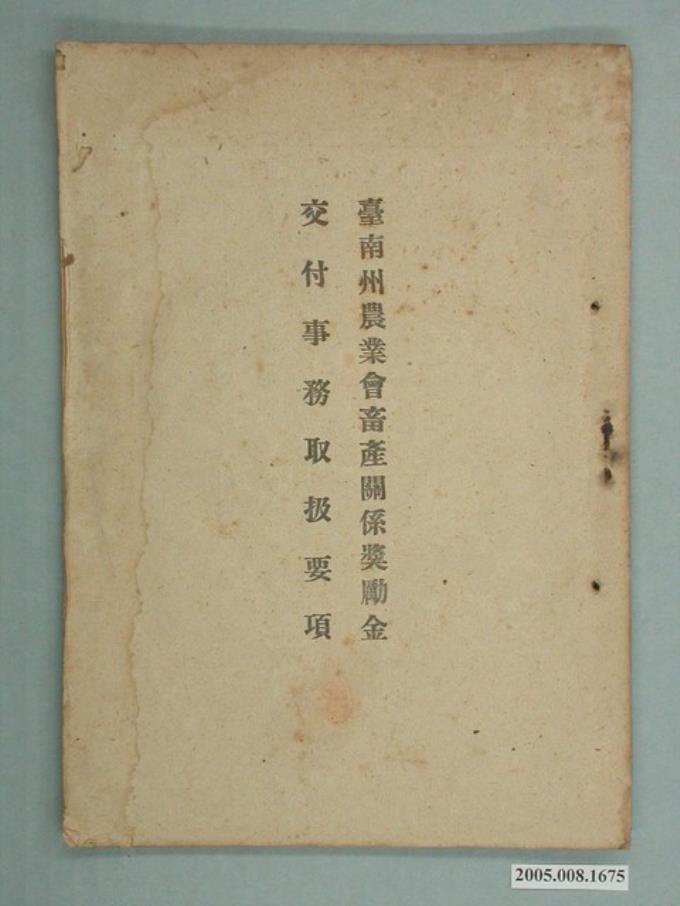 臺南州農業會畜產關係獎勵金
交付事務取扱要項
2005.008.1675